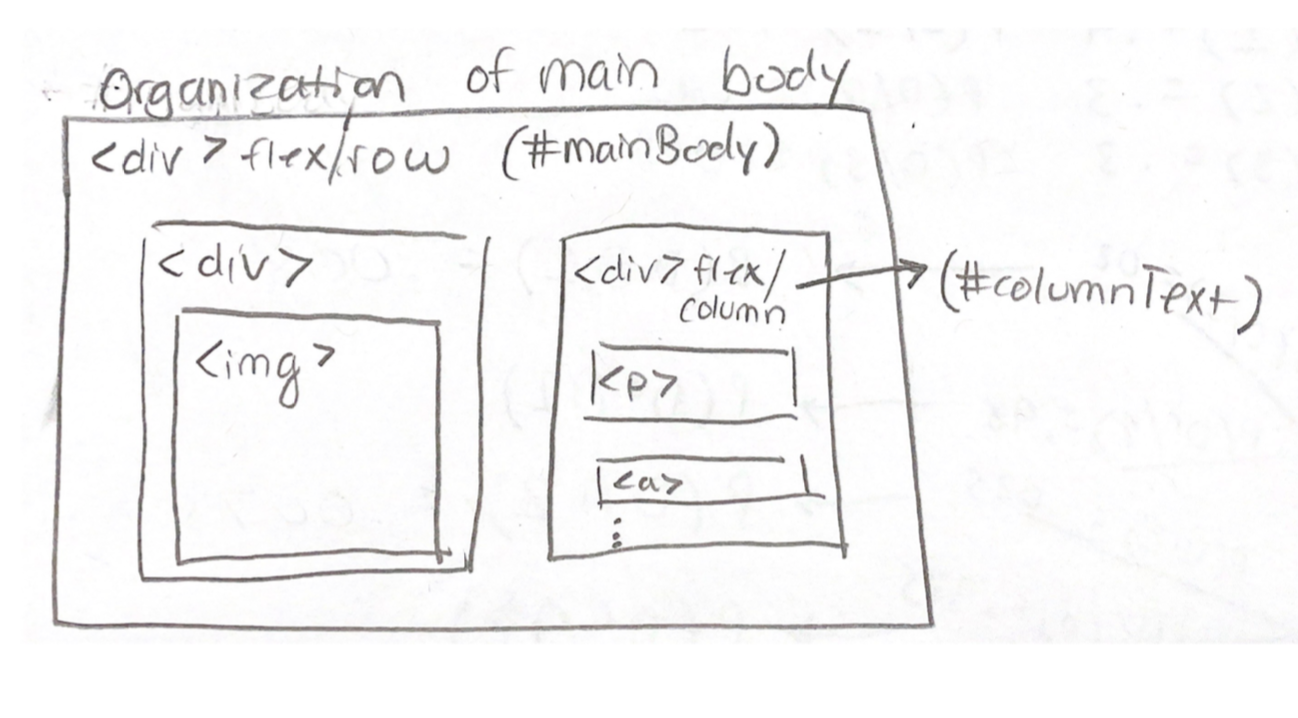 Organization of main body
<div> flex/row (#mainBody)
<div>
<img>
<div> flex/
column
(#columnText)
<p>
<a>